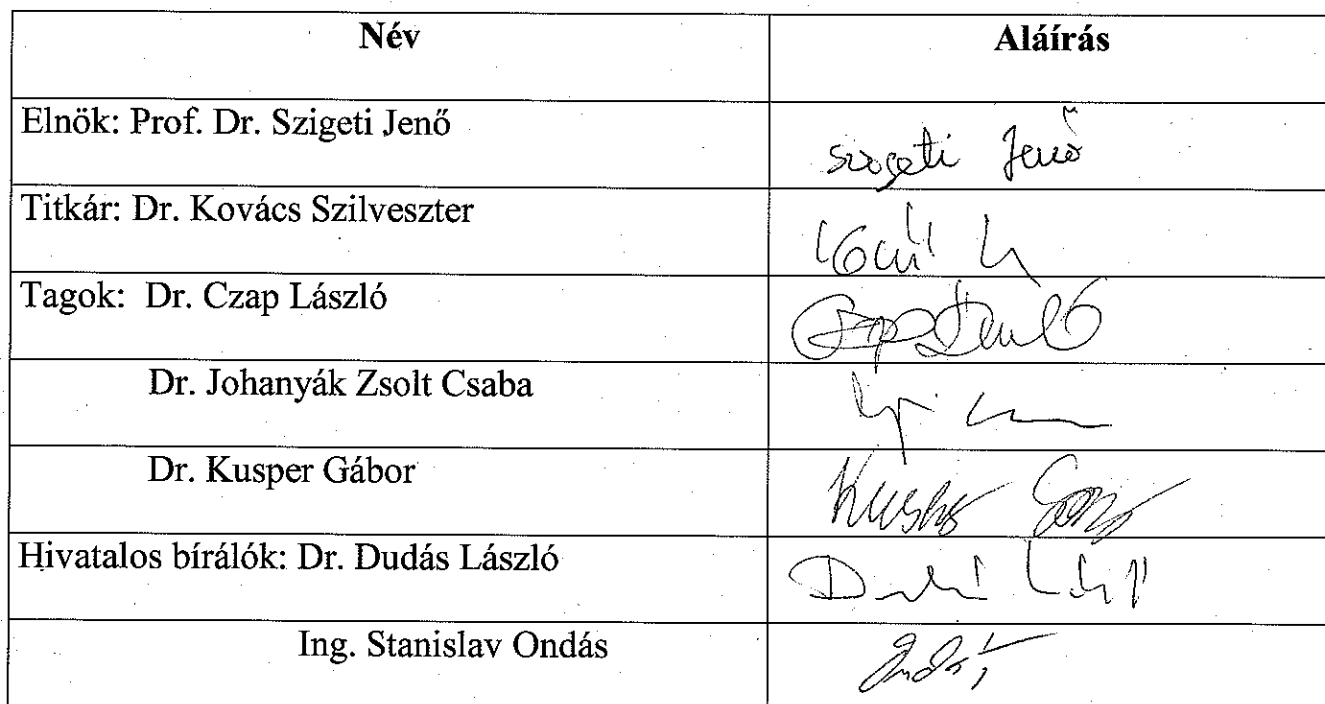 Név Aláírás
Elnök: Prof. Dr. Szigeti Jenő Szigeti Jenő
Titkár: Dr. Kovács Szilveszter
Tagok: Dr. Czap László
Dr. Johanyák Zsolt Csaba
Dr. Kusper Gábor Kusper
Hivatalos bírálók: Dr. Dudás László
Ing. Stanislav Ondás